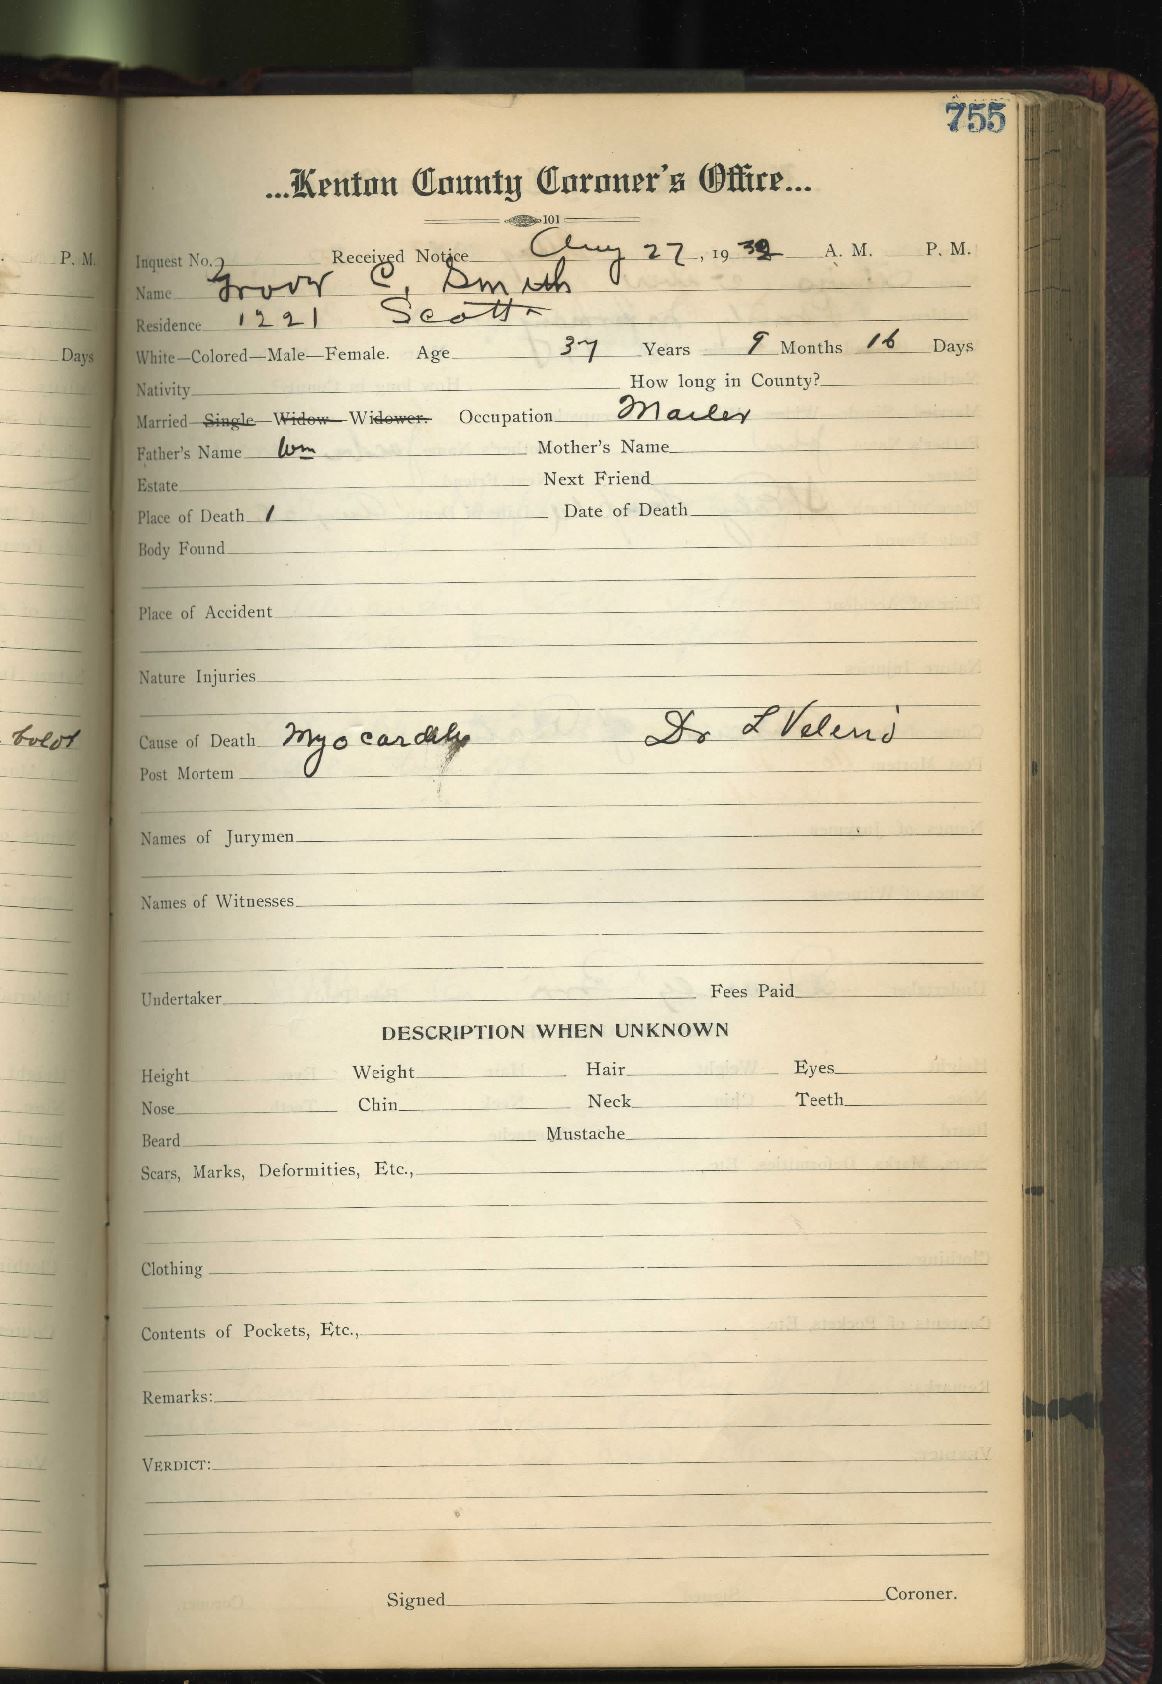 755
...Kenton County Coroner's Office...
101
Inquest No. Received Notice Aug 27, 1932 A. M. P. M.
Name Grover C. Smith
Residence 1221 Scott
White—Colored—Male—Female. Age 37 Years 9 Months 16 Days
Nativity How long in County?
Married—Single—Widow—Widower. Occupation Mailer
Father's Name Wm Mother's Name
Estate Next Friend
Place of Death 1 Date of Death
Body Found
Place of Accident
Nature Injuries
Cause of Death Myocarditis Dr L
Post Mortem
Names of Jurymen
Names of Witnesses
Undertaker Fees Paid
DESCRIPTION WHEN UNKNOWN
Height Weight Hair Eyes
Nose Chin Neck Teeth
Beard Mustache
Scars, Marks, Deformities, Etc.,
Clothing
Contents of Pockets, Etc.,
Remarks:
VERDICT:
Signed Coroner.
P. M.
Days